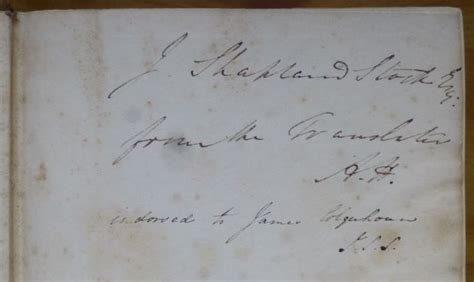 J. Shapland Stock Esq.
from the Translator
A. H.
indorsed to James
J. S. S.